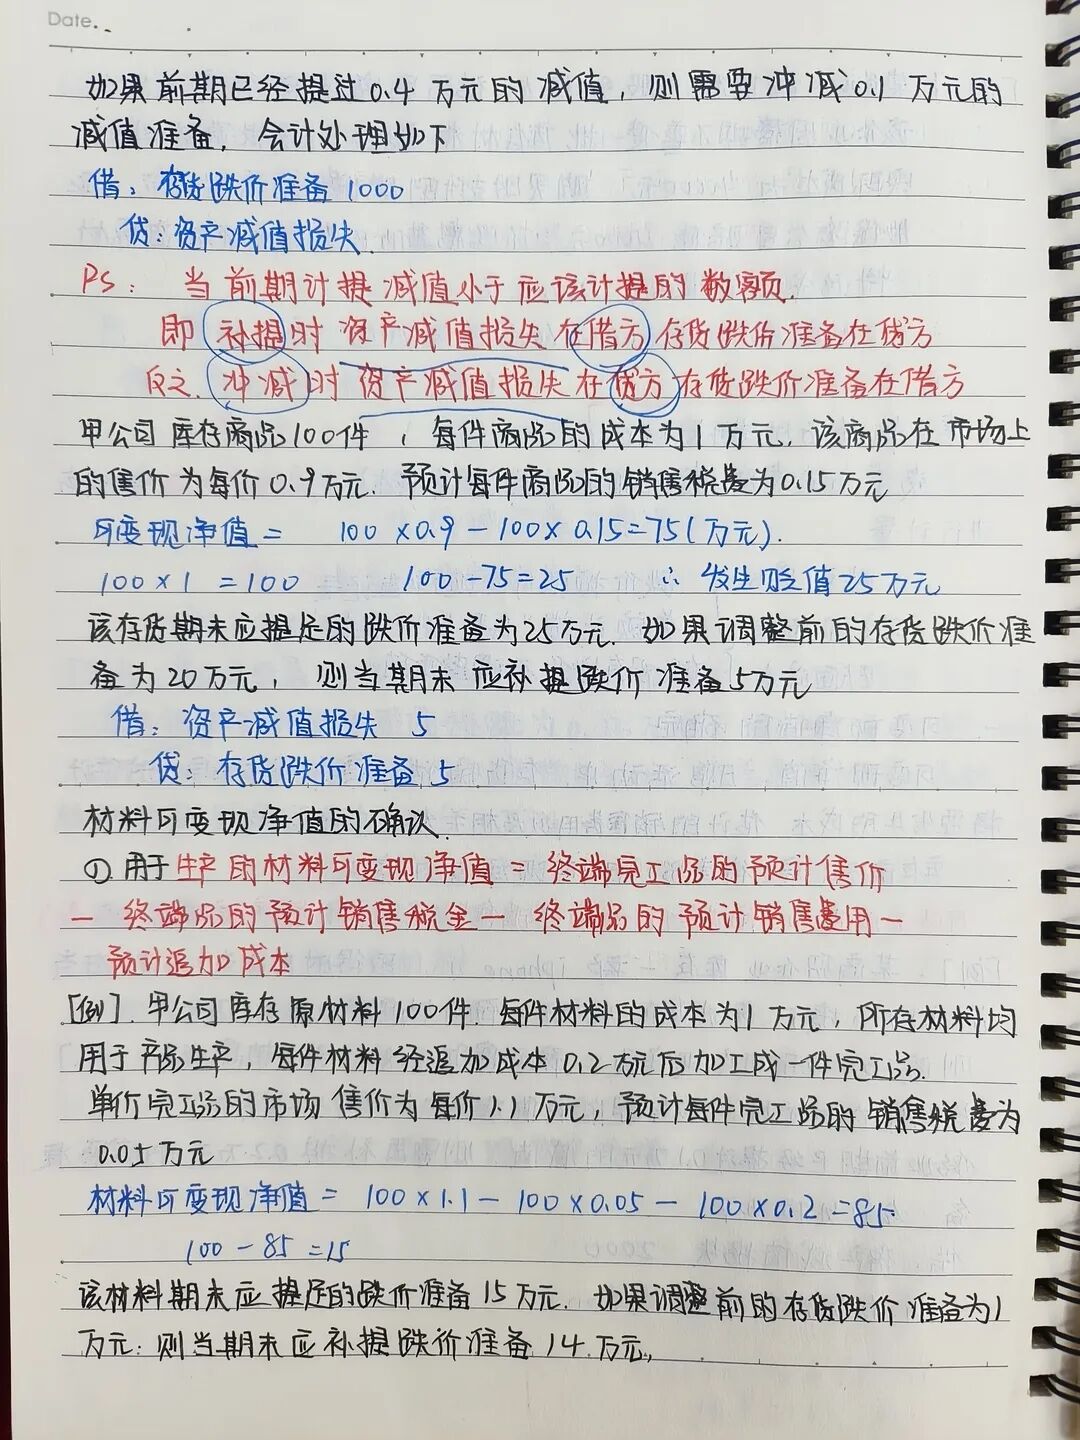 Date.
如果前期已经提过0.4万元的减值,则需要冲减0.1万元的
减值准备,会计处理如下
借:存货跌价准备1000
贷:资产减值损失
PS: 当前期计提减值小于应该计提的数额.
即补提时资产减值损失在借方存货跌价准备在贷方
反之.冲减时资产减值损失在贷方存货跌价准备在借方
甲公司库存商品100件,每件商品的成本为1万元.该商品在市场上
的售价为每价0.9万元.预计每件商品的销售税费为0.15万元
可变现净值= 100×0.9-100×0.15=75(万元).
100×1=100 100-75=25 ∴发生贬值25万元
该存货期末应提足的跌价准备为25万元.如果调整前的存货跌价准
备为20万元,则当期末应补提跌价准备5万元
借:资产减值损失 5
贷:存货跌价准备5
材料可变现净值的确认.
①.用于生产的材料可变现净值=终端完工品的预计售价
-终端品的预计销售税金-终端品的预计销售费用-
预计追加成本
[例].甲公司库存原材料100件.每件材料的成本为1万元,所存材料均
用于产品生产,每件材料经追加成本0.2万元后加工成一件完工品.
单价完工品的市场售价为每价1.1万元,预计每件完工品的销售税费为
0.05万元
材料可变现净值=100×1.1-100×0.05-100×0.2=85
100-85=15
该材料期末应提足的跌价准备15万元.如果调整前的存货跌价准备为1
万元:则当期末应补提跌价准备14万元,